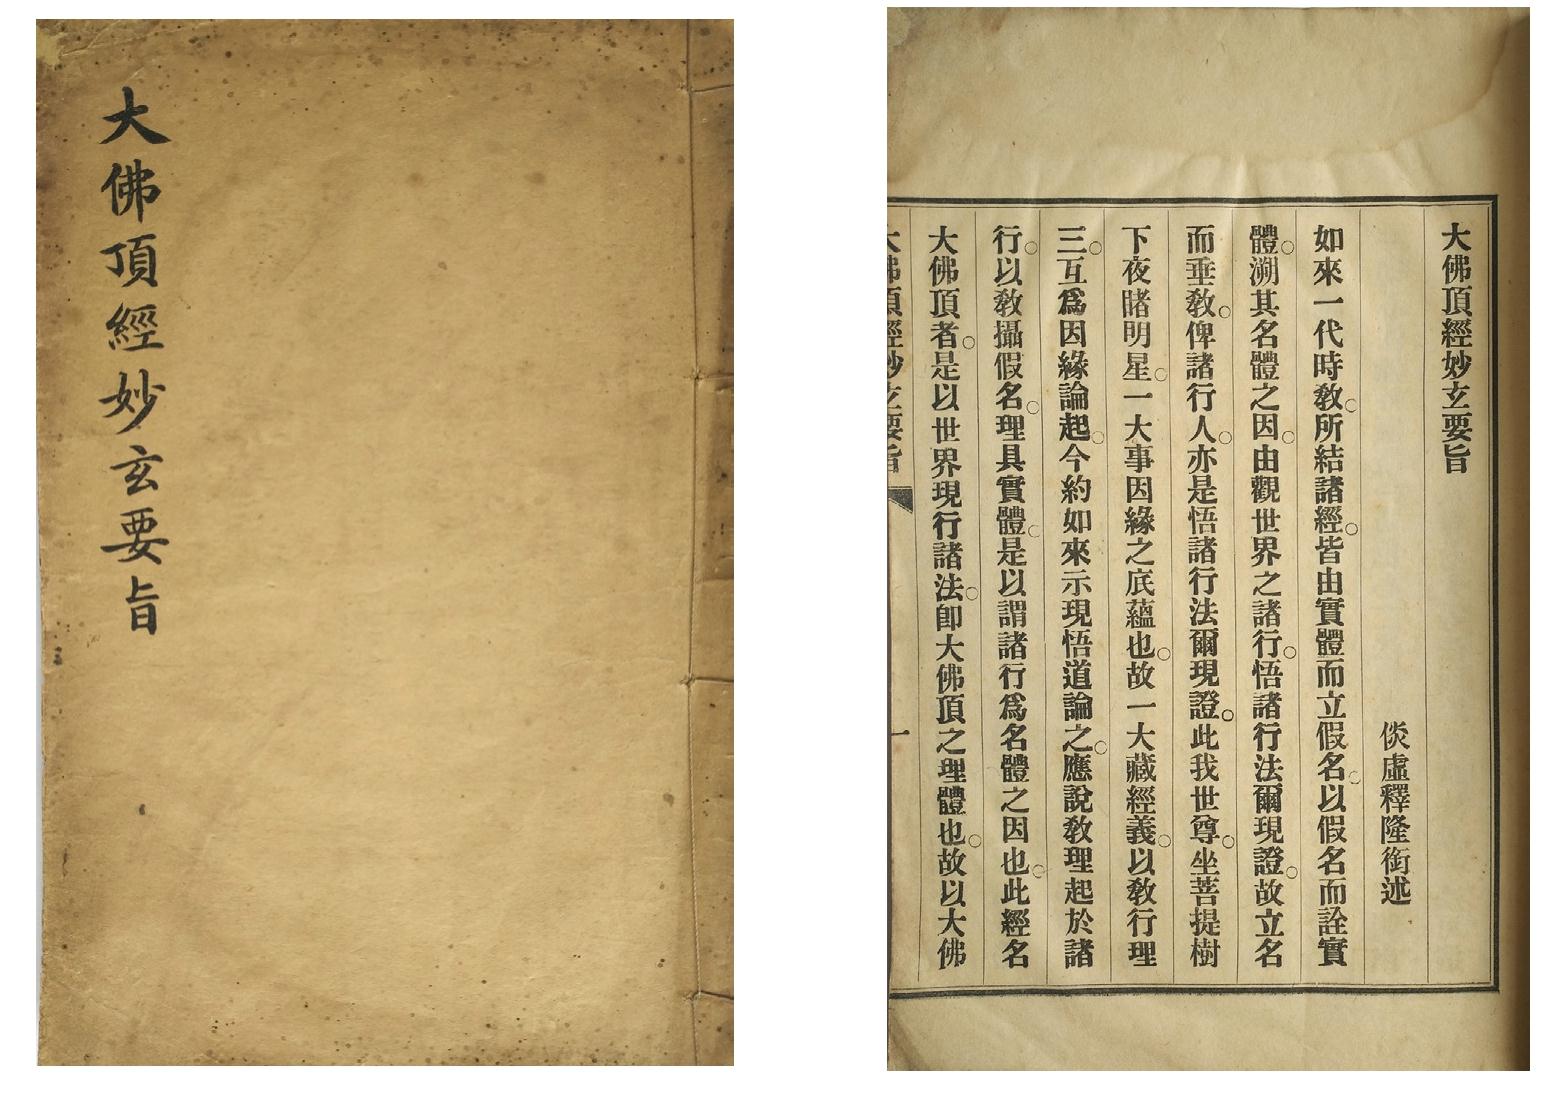 大佛頂經妙玄要旨
大佛頂經妙玄要旨
倓虛釋隆銜述
如來一代時教。所結諸經。皆由實體而立假名。以假名而詮實
體。溯其名體之因。由觀世界之諸行。悟諸行法爾現證。故立名
而垂教。俾諸行人。亦是悟諸行法爾現證。此我世尊。坐菩提樹
下夜睹明星。一大事因緣之底蘊也。故一大藏經義。以教行理
三。互爲因緣論起。今約如來示現悟道論之。應說教理起於諸
行。以教攝假名。理具實體。是以謂諸行爲名體之因也。此經名
大佛頂者。是以世界現行諸法。卽大佛頂之理體也。故以大佛
大佛頂經妙玄要旨
一